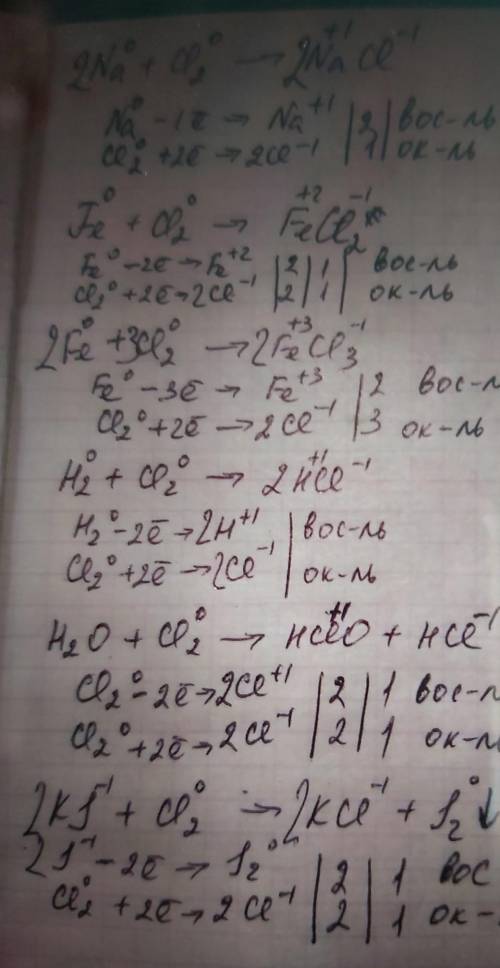 2Na⁰ + Cl₂⁰ → 2Na⁺¹Cl⁻¹
Na⁰ - 1ē → Na⁺¹ | 2 | вос-ль
Cl₂⁰ + 2ē → 2Cl⁻¹ | 1 | ок-ль
Fe⁰ + Cl₂⁰ → Fe⁺²Cl₂⁻¹
Fe⁰ - 2ē → Fe⁺² | 2 | 1 | вос-ль
Cl₂⁰ + 2ē → 2Cl⁻¹ | 2 | 1 | ок-ль
2Fe⁰ + 3Cl₂⁰ → 2Fe⁺³Cl₃⁻¹
Fe⁰ - 3ē → Fe⁺³ | 2 вос-л
Cl₂⁰ + 2ē → 2Cl⁻¹ | 3 ок-ль
H₂⁰ + Cl₂⁰ → 2H⁺¹Cl⁻¹
H₂⁰ - 2ē → 2H⁺¹ | вос-ль
Cl₂⁰ + 2ē → 2Cl⁻¹ | ок-ль
H₂O + Cl₂⁰ → HCl⁺¹O + HCl⁻¹
Cl₂⁰ - 2ē → 2Cl⁺¹ | 2 | 1 вос-л
Cl₂⁰ + 2ē → 2Cl⁻¹ | 2 | 1 ок-л
2KJ⁻¹ + Cl₂⁰ → 2KCl⁻¹ + J₂⁰ ↓
2J⁻¹ - 2ē → J₂⁰ | 2 | 1 вос
Cl₂⁰ + 2ē → 2Cl⁻¹ | 2 | 1 ок-